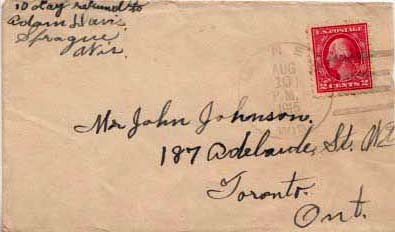 10 day return to
Adam Havi
Sprague
Wis.
U.S. POSTAGE
2 CENTS 2
AUG
10
P.M.
1915
Mr John Johnson.
187 Adelaide, St. W
Toronto.
Ont.